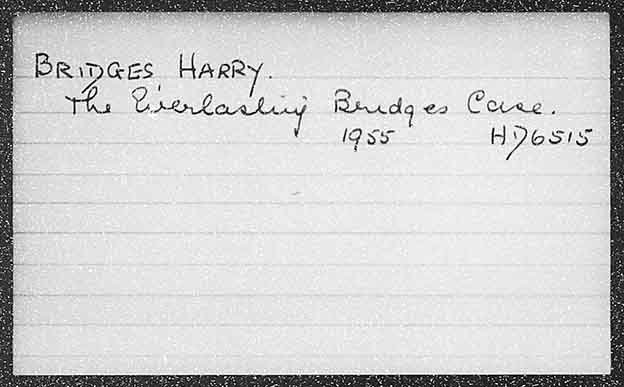 BRIDGES HARRY.
The Everlasting Bridges Case.
1955 HD6515